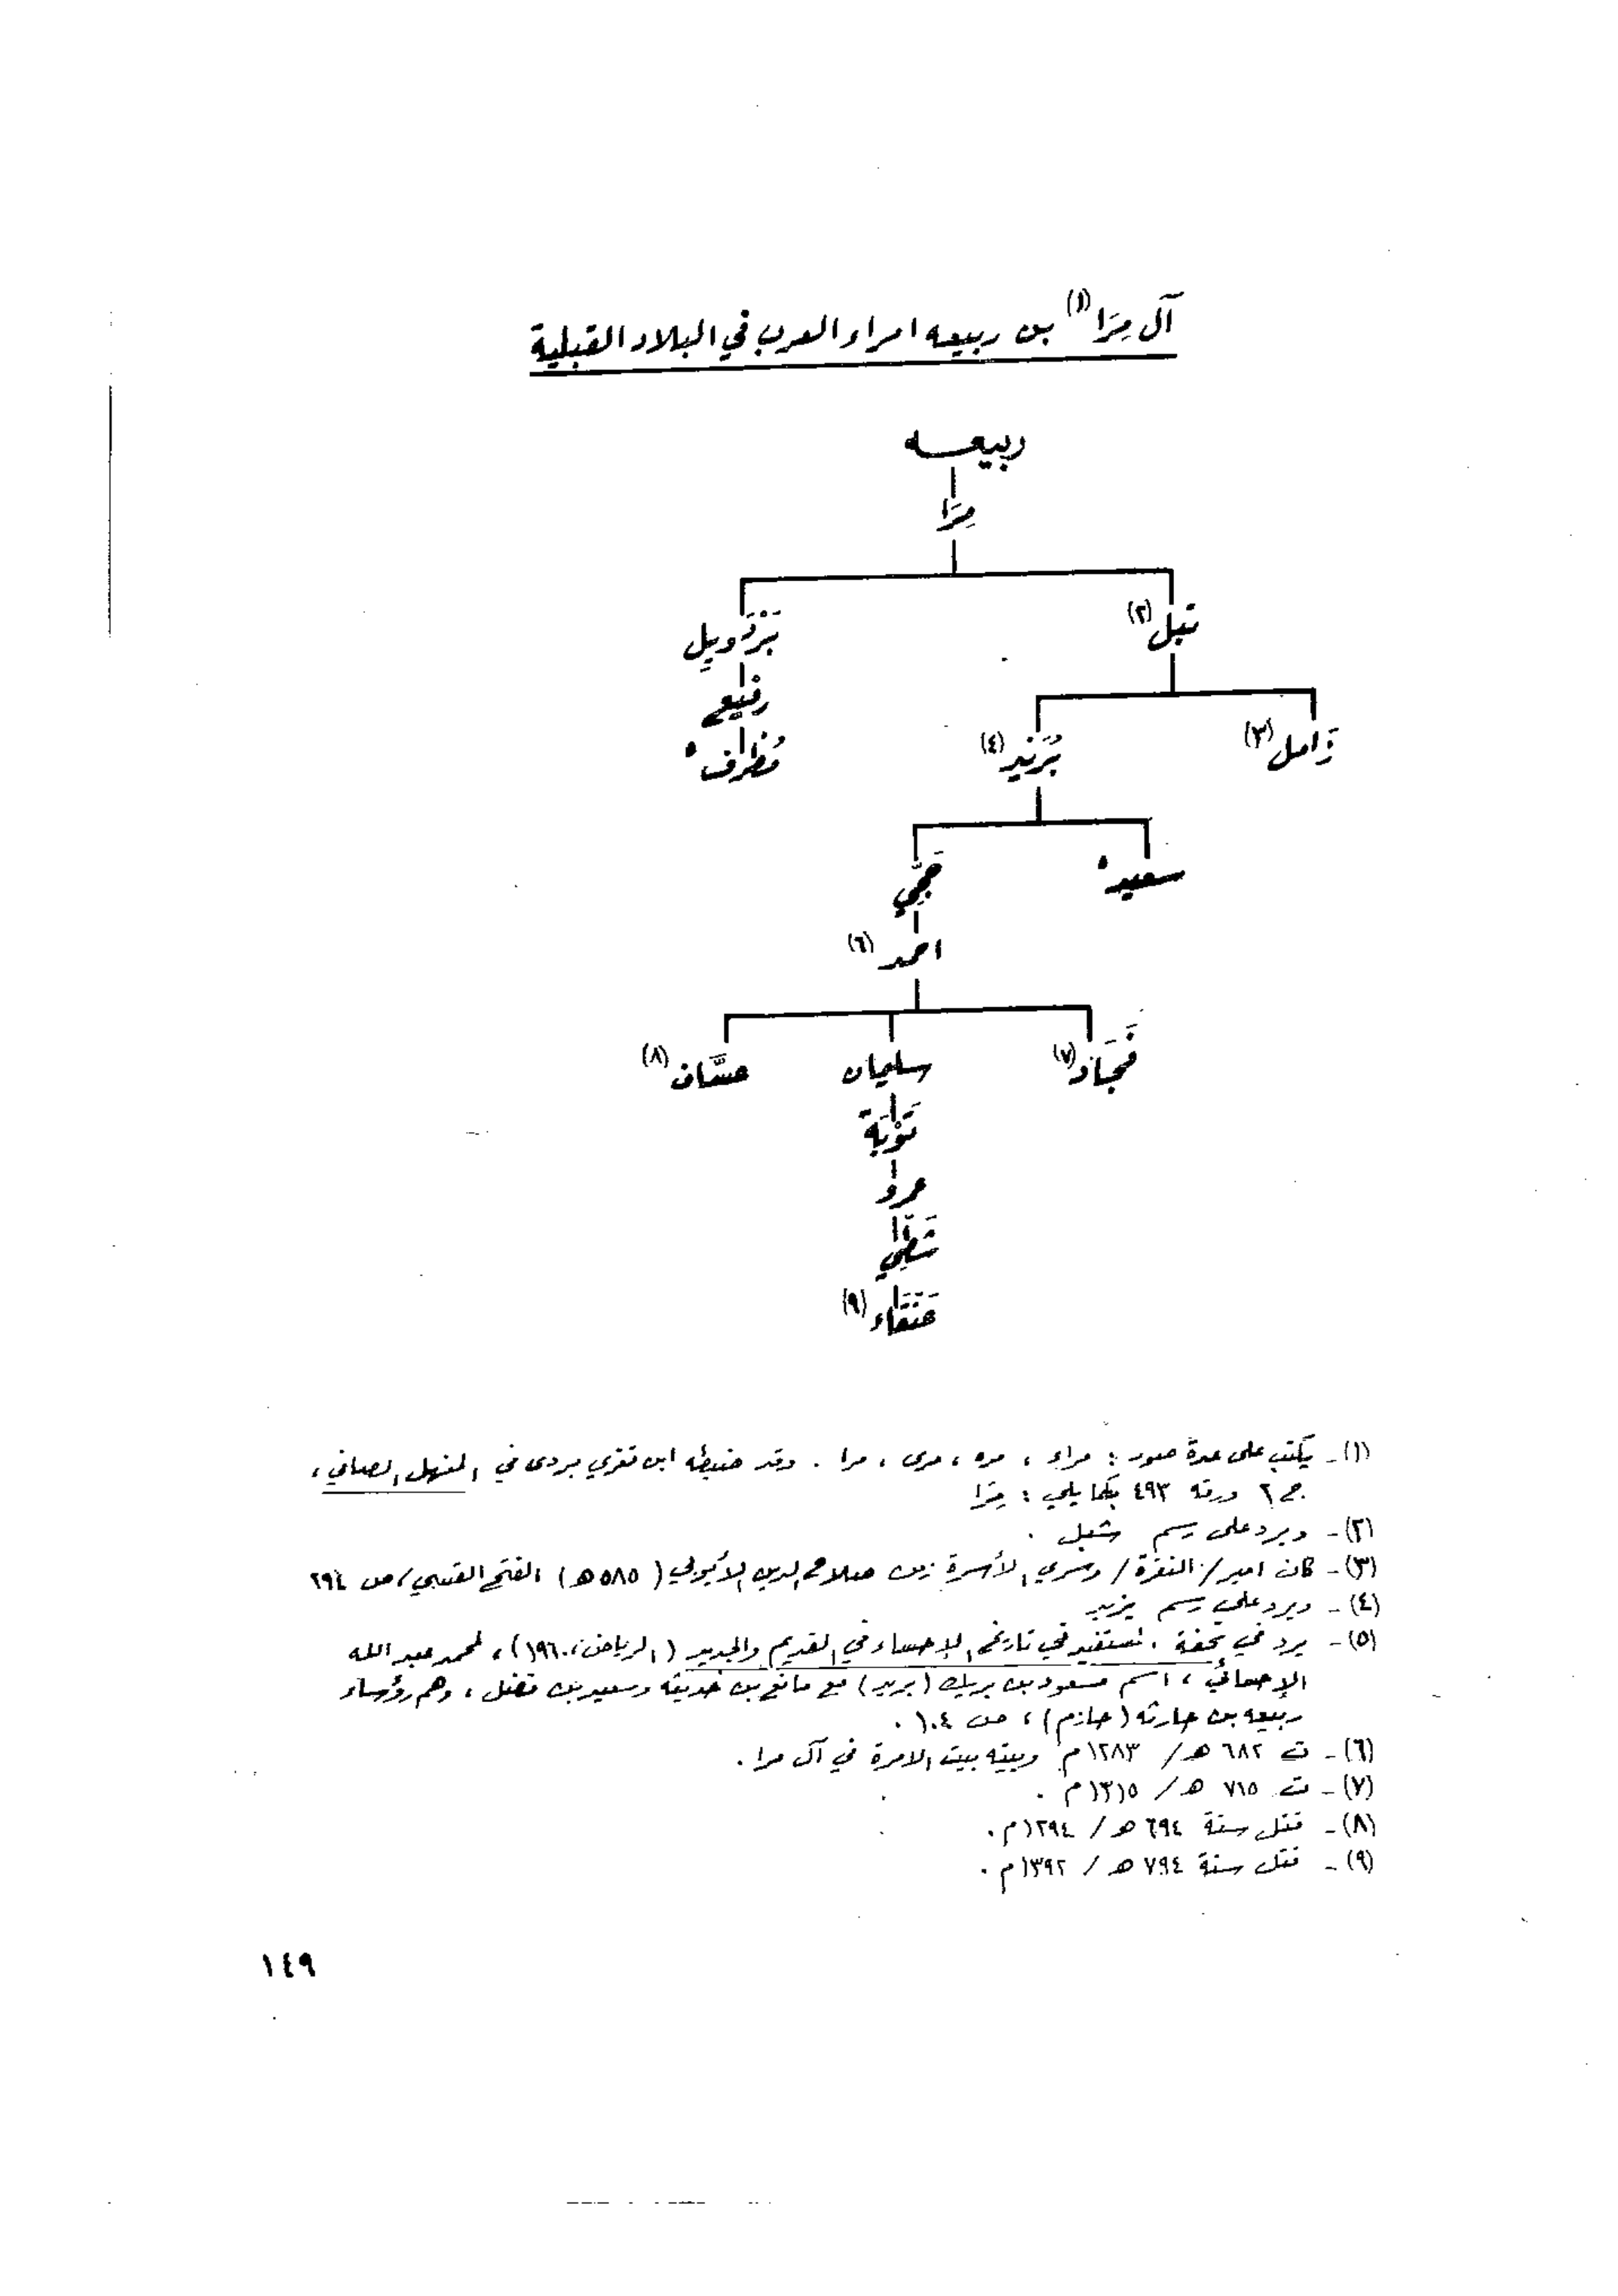 آل مِرَا (١) بن ربيعه امراء العرب في البلاد القبلية
ربيعه
مِرَا
تبل (٢)
بَرْدَويل
زَامل (٣)
بُرَيد (٤)
رفيع
مُطَرف ٥
سعيد ٥
حَجِّي
احمد (٦)
فَجَاد (٧)
سليمان
عسَّاف (٨)
تَوْبَة
عمرو
شَطِّي
عَنَقَاء (٩)
(١)- يكتب على عدة صور : مراء ، مره ، مرى ، مرا . وقد ضبطه ابن تغري بردى في المنهل الصافي ،
ج ٢ ورقه ٤٩٣ كما يلي : مِرَا
(٢)- ويرد على رسم شبل .
(٣)- كان امير / النقرة / وسري الأسرة زمن صلاح الدين الأيوبي ( ٥٨٥ هـ ) الفتح القسي ، ص ٢٩٤
(٤)- ويرد على رسم يزيد
(٥)- يرد في تحفة المستفيد في تاريخ الإحساء في القديم والجديد ( الرياض ، ١٩٦٠ ) ، لمحمد عبد الله
الإحسائي ، اسم مسعود بن بريك ( بريد ) مع مانع بن حديثه وسعيد بن فضل ، وهم رؤساء
ربيعه بن حارثه ( حازم ) ، ص ١٠٤ .
(٦)- ت ٦٨٢ هـ / ١٢٨٣ م وبيته بيت الامرة في آل مرا .
(٧)- ت ٧١٥ هـ / ١٣١٥ م .
(٨)- قتل سنة ٦٩٤ هـ / ١٢٩٤ م .
(٩)- قتل سنة ٧٩٤ هـ / ١٣٩٢ م .
١٤٩